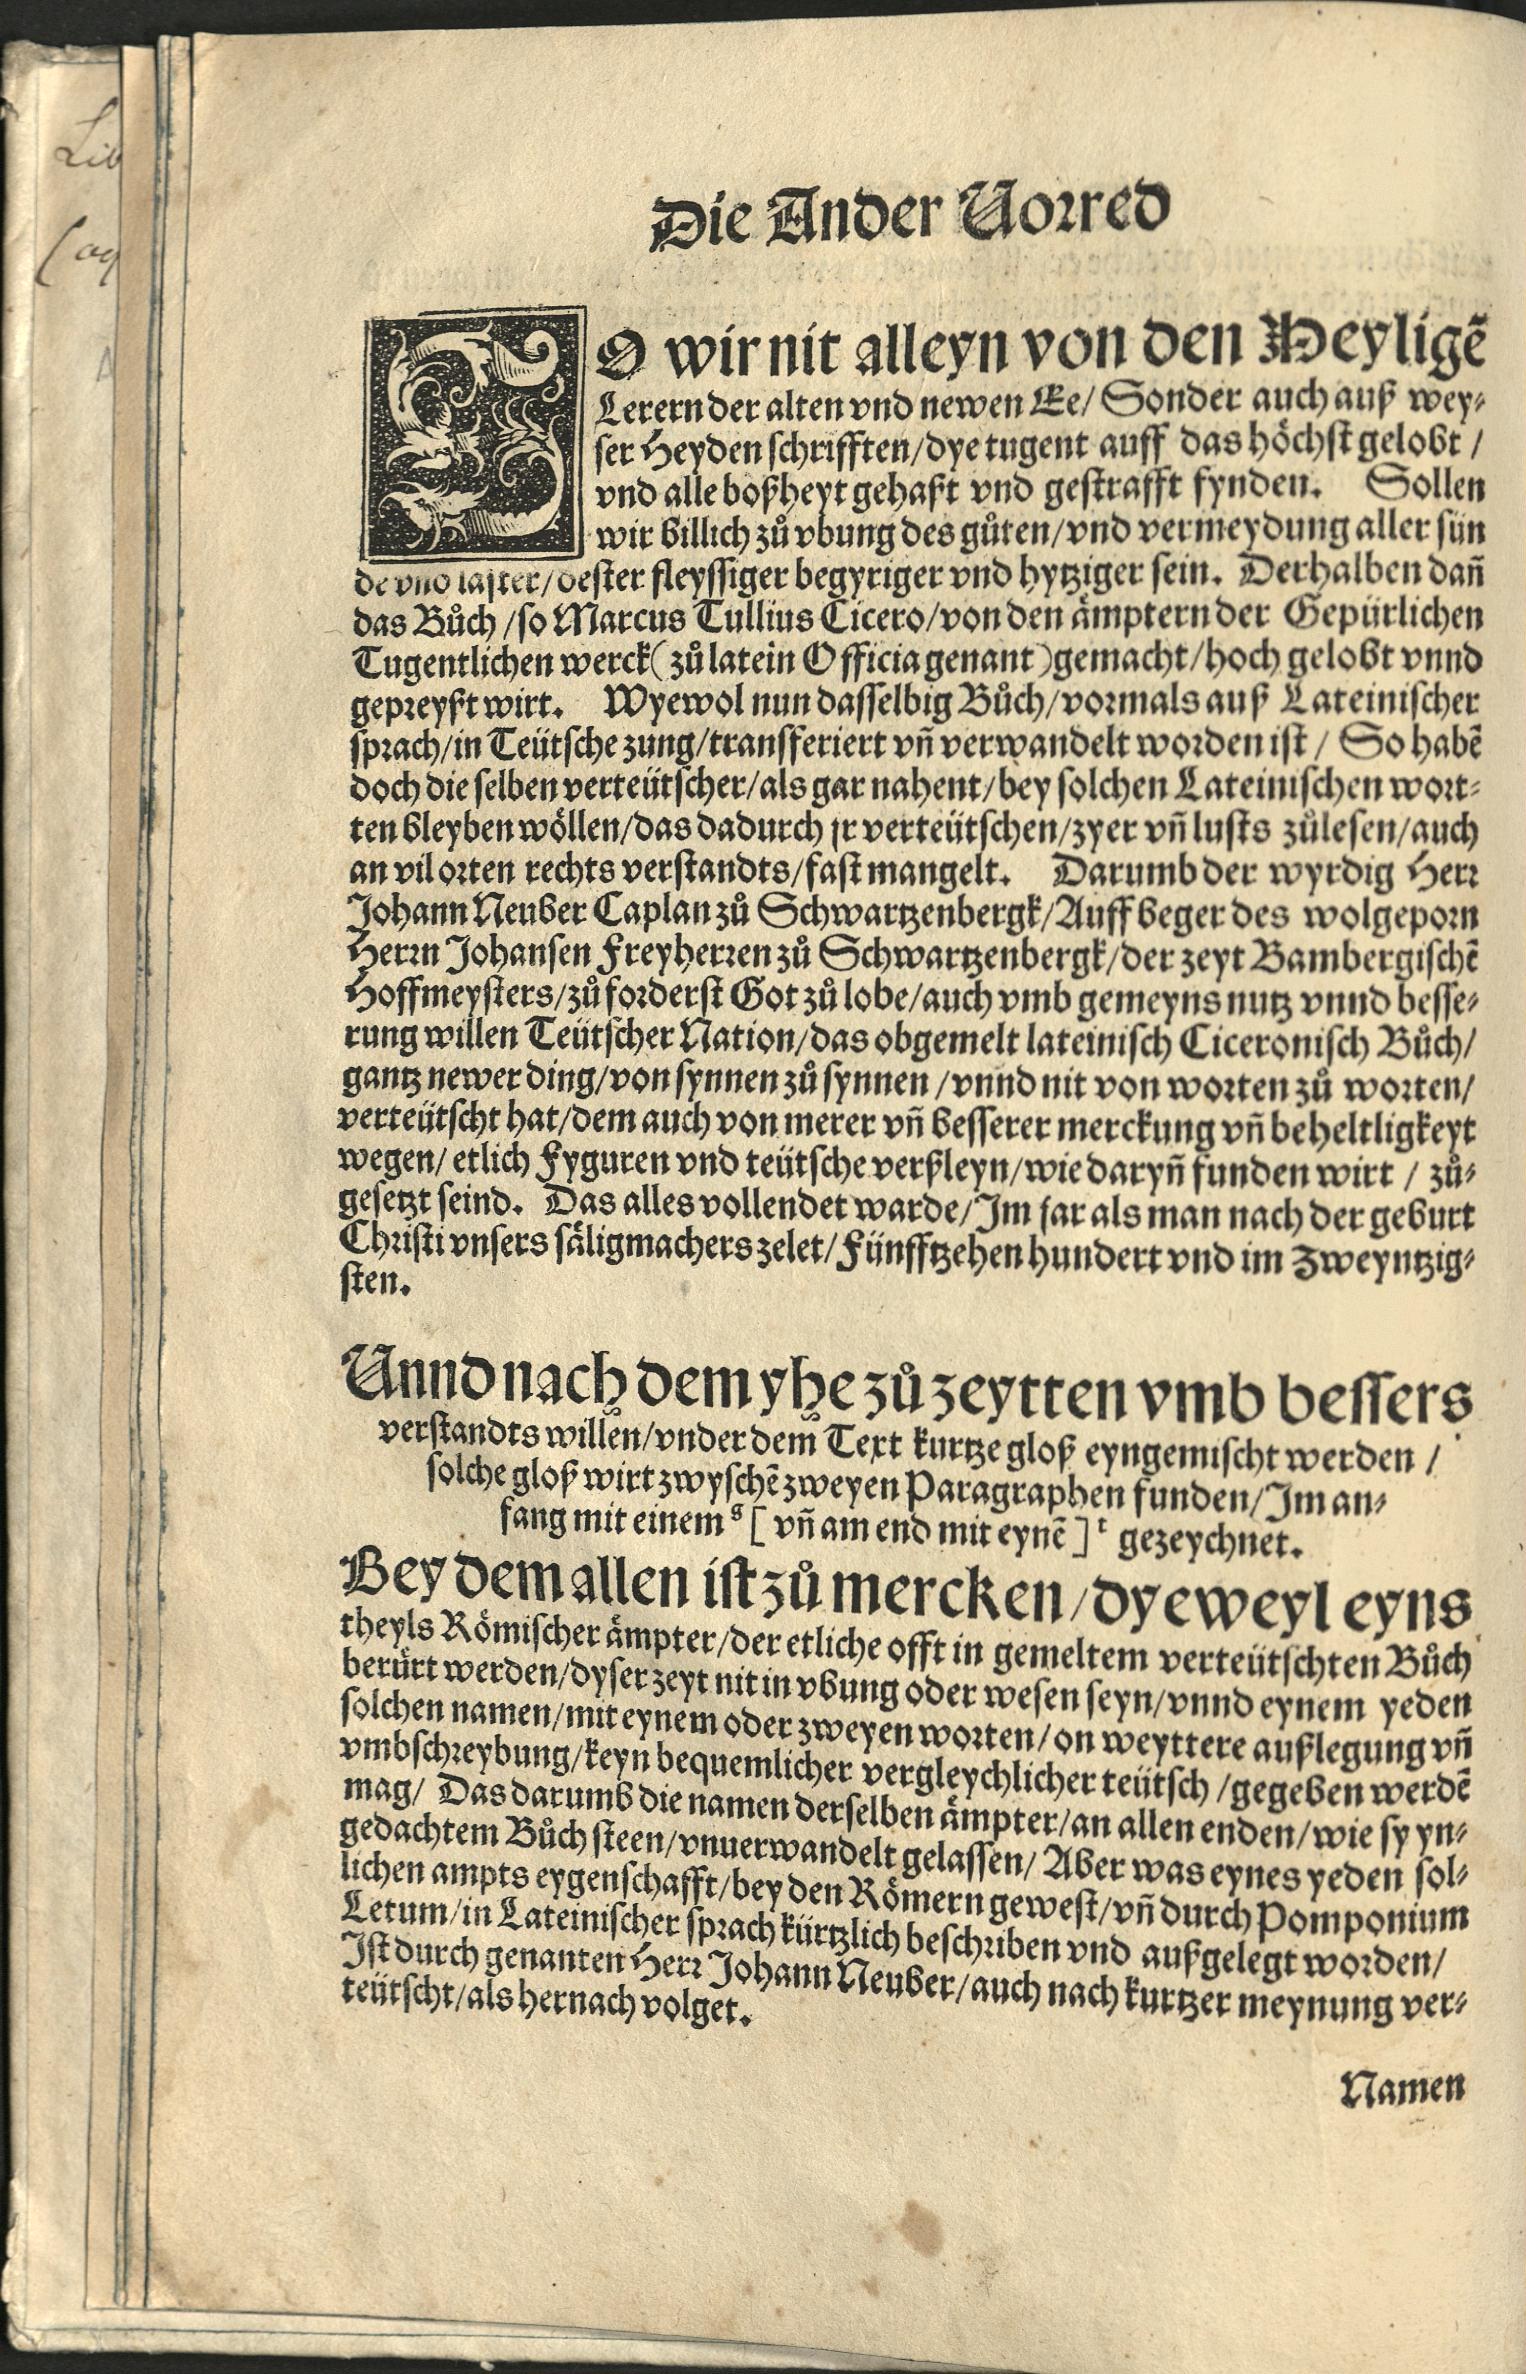 Lib
Die Ander Vorred
SO wir nit alleyn von den Heyligē
Lerern der alten vnd newen Ee/ Sonder auch auß wey⸗
ser Heyden schrifften/dye tugent auff das höchst gelobt /
vnd alle boßheyt gehaßt vnd gestrafft fynden. Sollen
wir billich zů vbung des gůten/vnd vermeydung aller sün
de vnd laster/dester fleyssiger begyriger vnd hytziger sein. Derhalben dañ
das Bůch /so Marcus Tullius Cicero/von den ämptern der Gepürlichen
Tugentlichen werck( zů latein Officia genant )gemacht/hoch gelobt vnnd
gepreyßt wirt. Wyewol nun dasselbig Bůch/vormals auß Lateinischer
sprach/in Teütsche zung/transferiert vñ verwandelt worden ist / So habē
doch die selben verteütscher/als gar nahent/bey solchen Lateinischen wort⸗
ten bleyben wöllen/das dadurch jr verteütschen/zyer vñ lusts zůlesen/auch
an vil orten rechts verstandts/fast mangelt. Darumb der wyrdig Herr
Johann Neuber Caplan zů Schwartzenbergk/Auff beger des wolgeporn
Herrn Johansen Freyherren zů Schwartzenbergk/der zeyt Bambergischē
Hoffmeysters/zů forderst Got zů lobe/auch vmb gemeyns nutz vnnd besse⸗
rung willen Teütscher Nation/das obgemelt lateinisch Ciceronisch Bůch/
gantz newer ding/von synnen zů synnen /vnnd nit von worten zů worten/
verteütscht hat/dem auch von merer vñ besserer merckung vñ beheltligkeyt
wegen/ etlich Fyguren vnd teütsche verßleyn/wie daryñ funden wirt / zů⸗
gesetzt seind. Das alles vollendet warde/Im jar als man nach der geburt
Christi vnsers säligmachers zelet/Fünfftzehen hundert vnd im Zweyntzig⸗
sten.
Vnnd nach dem yhe zů zeytten vmb bessers
verstandts willen/vnder dem Text kurtze gloß eyngemischt werden /
solche gloß wirt zwyschē zweyen Paragraphen funden/Im an⸗
fang mit einem g [ vñ am end mit eynē ] t gezeychnet.
Bey dem allen ist zů mercken/dyeweyl eyns
theyls Römischer ämpter/der etliche offt in gemeltem verteütschten Bůch
berürt werden/dyser zeyt nit in vbung oder wesen seyn/vnnd eynem yeden
solchen namen/mit eynem oder zweyen worten/on weyttere außlegung vñ
vmbschreybung/keyn bequemlicher vergleychlicher teütsch /gegeben werdē
mag/ Das darumb die namen derselben ämpter/an allen enden/wie sy yn⸗
gedachtem Bůch steen/vnuerwandelt gelassen/ Aber was eynes yeden sol⸗
lichen ampts eygenschafft/bey den Römern gewest/vñ durch Pomponium
Letum/in Lateinischer sprach kürtzlich beschriben vnd außgelegt worden/
Ist durch genanten Herr Johann Neuber/auch nach kurtzer meynung ver⸗
teütscht/als hernach volget.
Namen